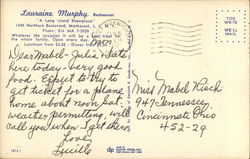 Lauraine Murphy
Restaurant
"A Long Island Showplace"
1445 Northern Boulevard, Manhasset, L. I.
Phone: 516 MA 7-2020
Whatever the occasion it will be a real treat for
the whole family. Open every day
Luncheon from $2.00 - Dinner from
Dear Mabel - Julia & Nate
here today - Very good
food. Expect to try to
get ticket for a plane
home about noon Sat.
weather permitting, will
call you when I get there
Love,
Lucille
Miss Mabel Risch
947 Tennessee,
Cincinnati Ohio
452-29
YOU
WRITE
WE'LL
MAIL